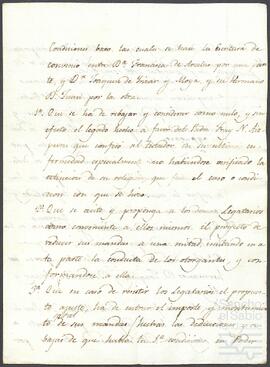 Condiciones bajo las cuales se hará la Escritura de
convenio entre Dª Francisca de por una par
te, y Dn Joaquin de Yrizar y Moya, y su Hermano
Dn Juan por la otra.
1ª Que se ha de rebajar y considerar como nulo, y sin
efecto el legado hecho a favor del Padre Fray N.
que confió el Testador en su ultima en
fermedad especialmente no habiendose verificado la
extincion de su religion, que el caso o condi
cion con que se hizo.
2ª Que se invite y proponga a los demas Legatarios
como conveniente a ellos mismos, el proyecto de
reducir sus mandas a una mitad, imitando en es
ta parte la conducta de los otorgantes y con
formandose a ella.
3ª Que en caso de resistir los Legatarios el propues
to ajuste, ha de entrar el importe
to de sus mandas (hechas las deducciones
bajas de que habla la 1ª condicion) en Poder
Sancho el Sabio